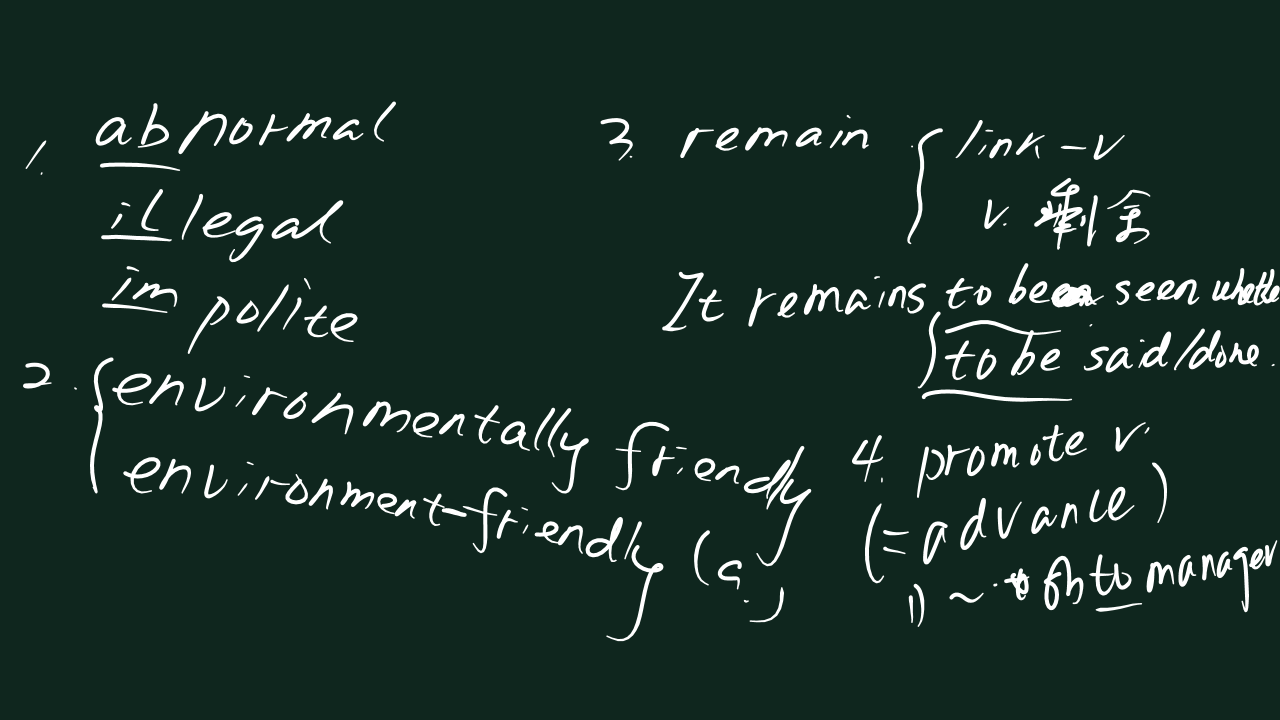 1. abnormal
illegal
impolite
2. environmentally friendly
environment-friendly (a.)
3. remain { link-v
v. 剩余
It remains to be seen whether
to be said/done.
4. promote v.
(= advance)
1) ~ sb to manager